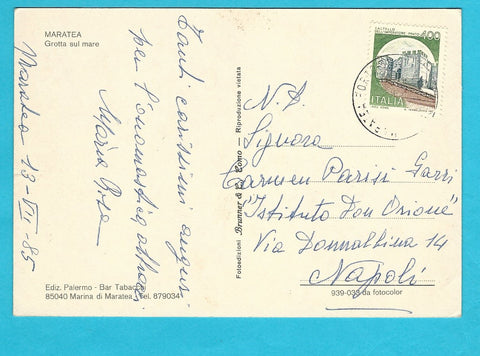 MARATEA
Grotta sul mare
Maratea 13-VII-85
Tanti carissimi auguri
per l'onomastico
Maria
Ediz. Palermo - Bar Tabacchi
85040 Marina di Maratea - Tel. 879034
Fotoedizioni Brunner & C. Como - Riproduzione vietata
400
ITALIA
N. D.
Signora
Carmen Parisi
"Istituto Don Orione"
Via Donnalbina 14
Napoli
939-033 da fotocolor